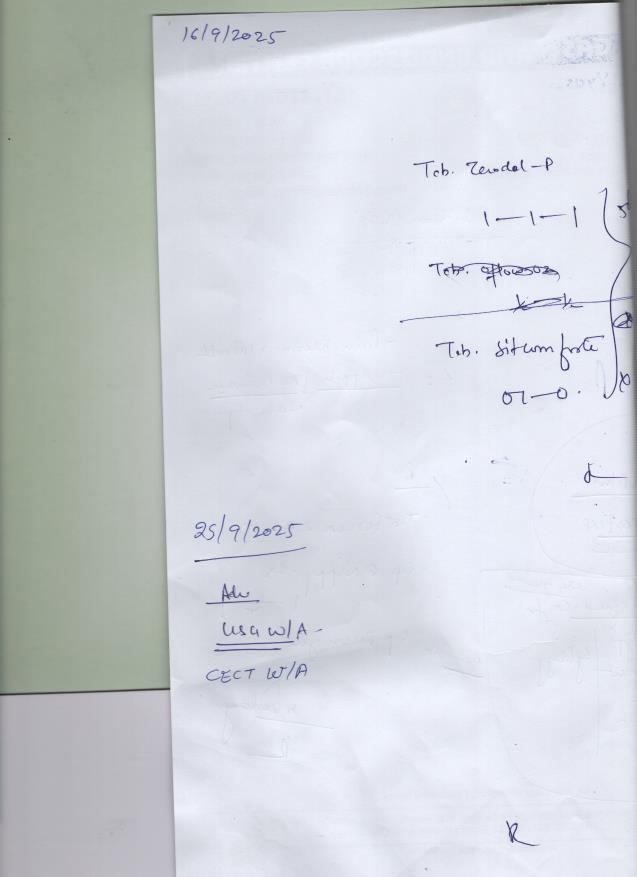 16/9/2025
Tab. Zerodol-P
1—1—1
5
Tab. Sitcom forte
25/9/2025
Adv
USG W/A
CECT W/A